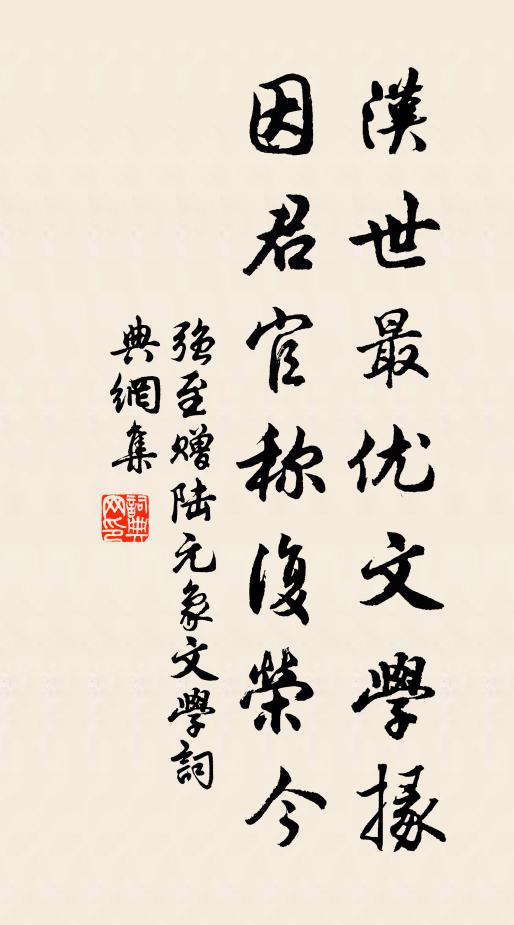 漢世最优文學掾
因君官称復榮今
强至赠陆元象文學詞
典網集
詞典网印